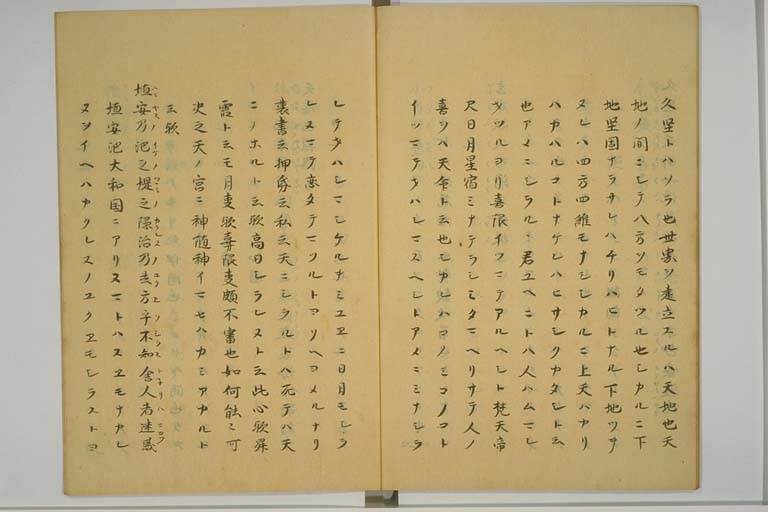 久堅トハソラ也世界ヲ建立スルハ天地也天
地ノ間ニシテ八方ヲモタツル也シカルニ下
地堅固ナラサレハチリハヒトナル下地ツヲ
ヌレハ四方四維モナシシカルニ上天ハカリ
ハカハルコトナケレハヒサシクカタシト云
也アメニシラルヽ君ユヘニトハ人ハムマレ
メツルヨリ壽限イツマテアルヘシト梵天帝
尺日月星宿ミナテラシミタマヘリサテ人ノ
壽ヲハ天命ト云也シカレハコノミコノコト
イツマテタハシマスヘシトアメニミナシラ
レテタハシマシケルナミユヱニ日月モシラ
レスマテ恋タテマツルトヨソヘヨメルナリ
裏書云押ꀀ云私云天ニシラルトハ死テハ天
ニノホルト云歟高日シラレスト云此心歟昇
霞ト云モ月支歟壽限支頗不審也如何能々可
决之天ノ宮ニ神随神イマセハカミアカルト
云歟
垣安乃池之堤之隠沼乃去方乎不知舎人者迷惑
垣安池大和国ニアリヌマトハスヱモナカレ
ヌヲイヘハカクレヌノユクヱモシラストヨ